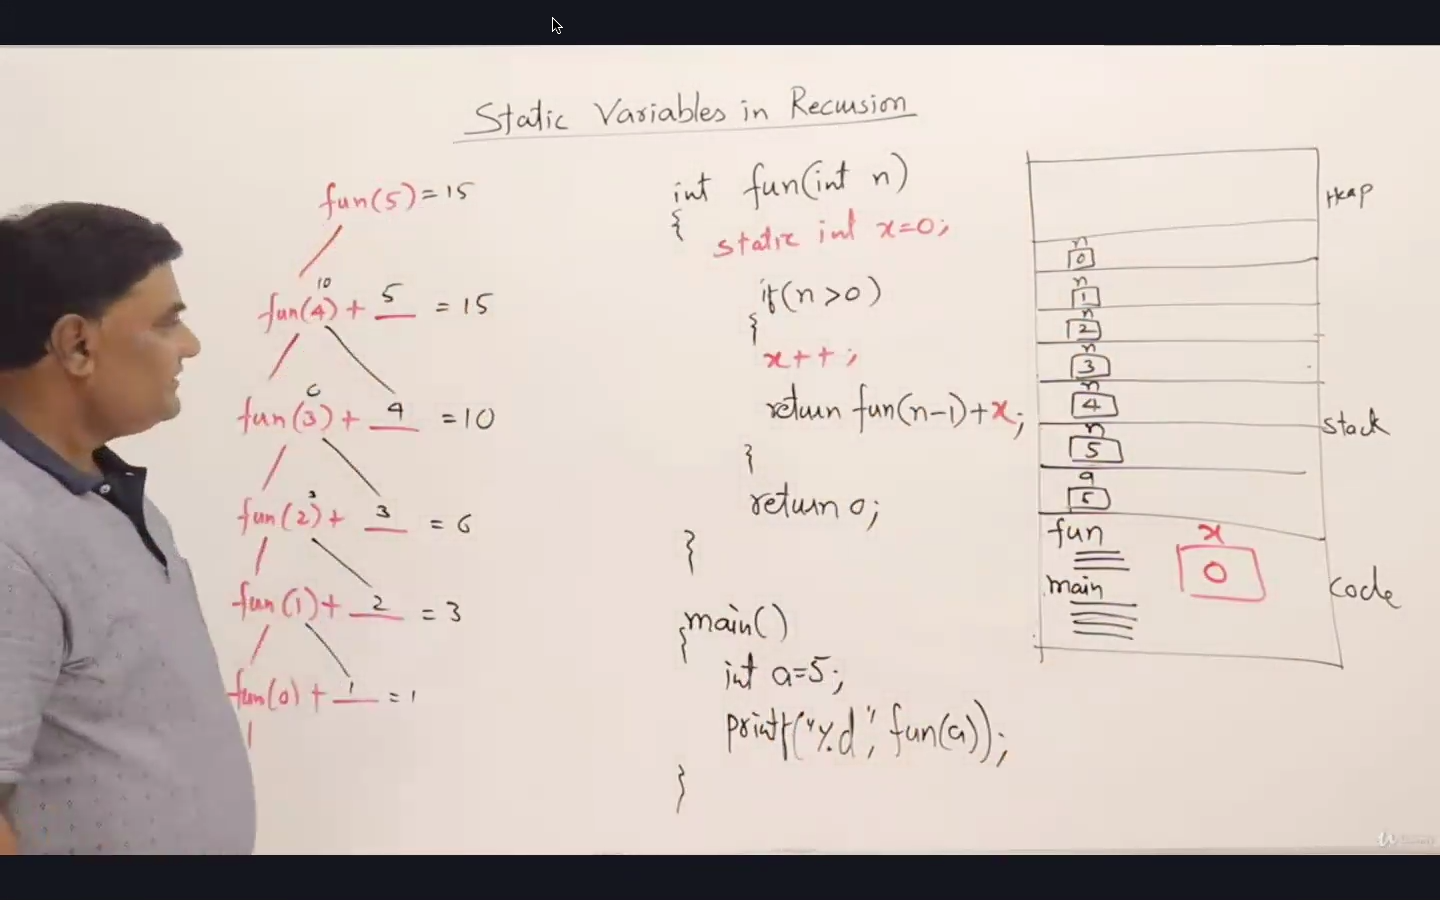 Static Variables in Recursion
fun(5) = 15
10
fun(4) + 5 = 15
6
fun(3) + 4 = 10
3
fun(2) + 3 = 6
fun(1) + 2 = 3
fun(0) + 1 = 1
int fun(int n)
{
static int x=0;
if(n>0)
{
x++;
return fun(n-1)+x;
}
return 0;
}
main()
{
int a=5;
printf("%d", fun(a));
}
Heap
n
0
n
1
n
2
n
3
n
4
n
5
stack
a
5
fun
x
0
main
code